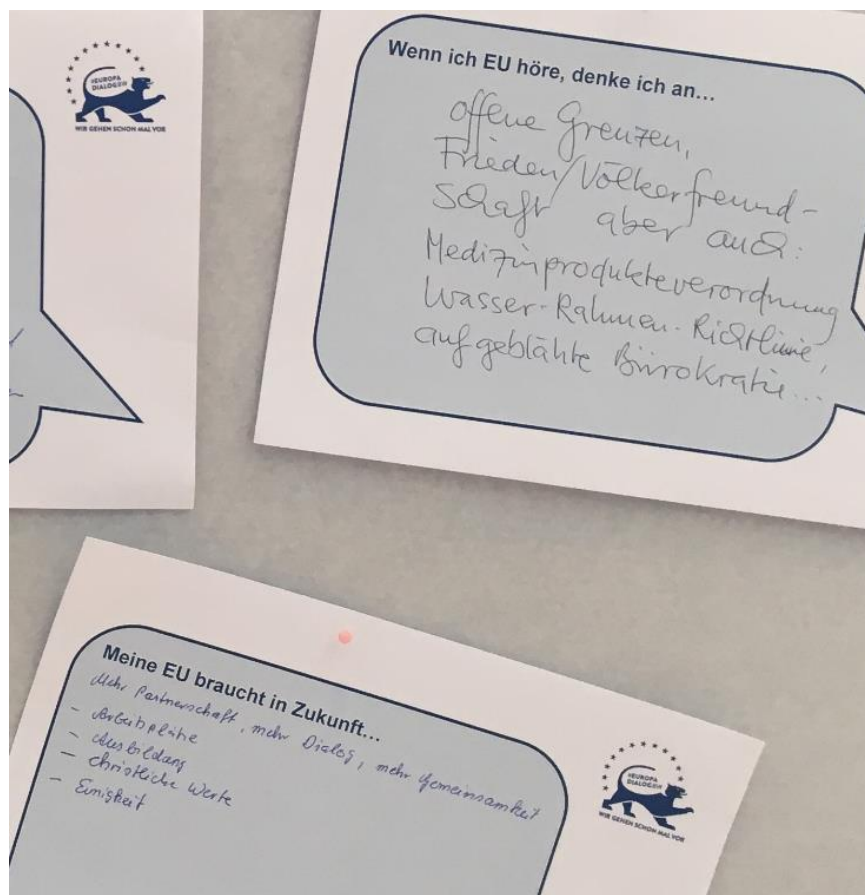 #EUROPA
DIALOG@BW
WIR GEHEN SCHON MAL VOR
Wenn ich EU höre, denke ich an...
offene Grenzen,
Frieden/Völkerfreund-
schaft aber auch:
Medizinprodukteverordnung
Wasser-Rahmen-Richtlinie,
aufgeblähte Bürokratie...
Meine EU braucht in Zukunft...
Mehr Partnerschaft, mehr Dialog, mehr Gemeinsamkeit
- Arbeitsplätze
- Ausbildung
- christliche Werte
- Einigkeit
#EUROPA
DIALOG@BW
WIR GEHEN SCHON MAL VOR